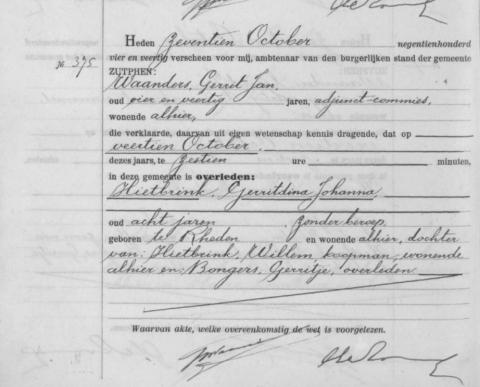 Heden zeventien October negentienhonderd
No 375 vier en veertig verscheen voor mij, ambtenaar van den burgerlijken stand der gemeente
ZUTPHEN:
Waanders, Gerrit Jan,
oud vier en veertig jaren, adjunct-commies,
wonende alhier,
die verklaarde, daarvan uit eigen wetenschap kennis dragende, dat op
veertien October
dezes jaars, te zestien ure minuten,
in deze gemeente is overleden:
Hietbrink, Gerritdina Johanna,
oud acht jaren zonder beroep
geboren te Rheden en wonende alhier, dochter
van: Hietbrink, Willem, koopman, wonende
alhier en: Bongers, Gerritje, overleden
Waarvan akte, welke overeenkomstig de wet is voorgelezen.